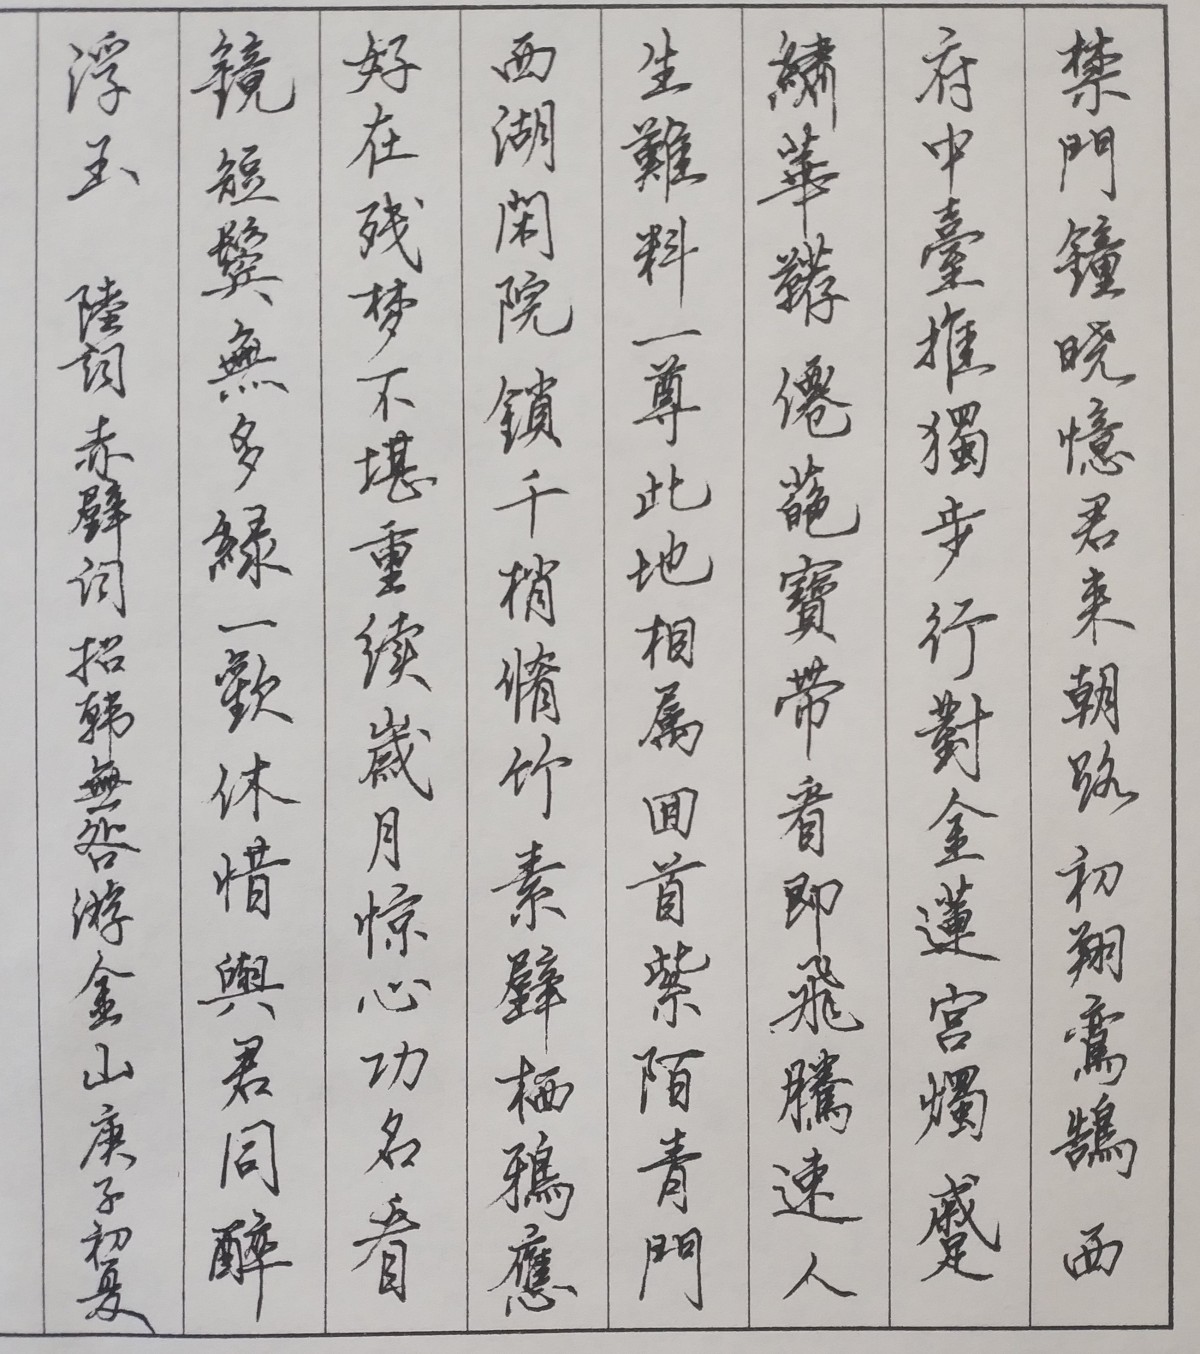 禁門鐘晓憶君来朝路初翔鸞鵠西
府中臺推獨步行對金蓮宮燭蹙
繡華韉僊葩寶帶看即飛騰速人
生難料一尊此地相属回首紫陌青門
西湖閑院鎖千梢脩竹素壁栖鴉應
好在残梦不堪重续歲月惊心功名看
鏡短鬢無多緑一歡休惜與君同醉
浮玉 陸词赤壁词招韩無咎游金山庚子初夏